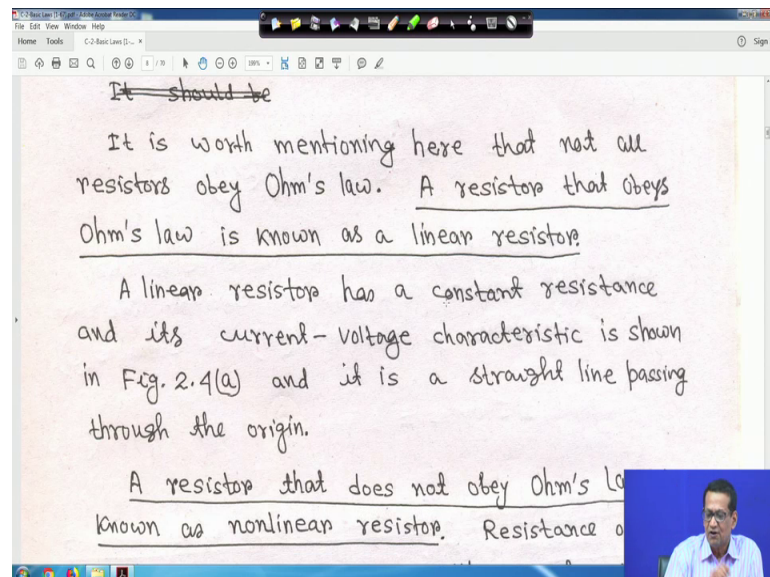 C-2-Basic Laws [1-67].pdf - Adobe Acrobat Reader DC
File Edit View Window Help
Home Tools C-2-Basic Laws [1-... × Sign
8 / 70
It should be
It is worth mentioning here that not all
resistors obey Ohm's law. A resistor that obeys
Ohm's law is known as a linear resistor.
A linear resistor has a constant resistance
and its current-voltage characteristic is shown
in Fig. 2.4(a) and it is a straight line passing
through the origin.
A resistor that does not obey Ohm's
known as nonlinear resistor. Resistance